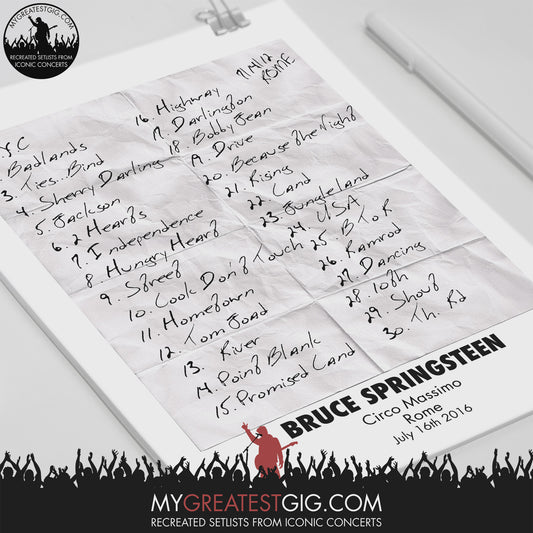 MYGREATESTGIG.COM
RECREATED SETLISTS FROM
ICONIC CONCERTS
ROME
Y.C
Badlands
3. Ties...Bind
4. Sherry Darling
5. Jackson
6. 2 Hearts
7. Independence
8. Hungry Heart
9. Street
10. Look Don't Touch
11. Hometown
12. Tom Joad
13. River
14. Point Blank
15. Promised Land
16. Highway
17. Darlington
18. Bobby Jean
19. Drive
20. Because The Night
21. Rising
22. Land
23. Jungleland
24. USA
25. BToR
26. Ramrod
27. Dancing
28. 10th
29. Shout
30. Th. Rd
BRUCE SPRINGSTEEN
Circo Massimo
Rome
July 16th 2016
MYGREATESTGIG.COM
RECREATED SETLISTS FROM ICONIC CONCERTS